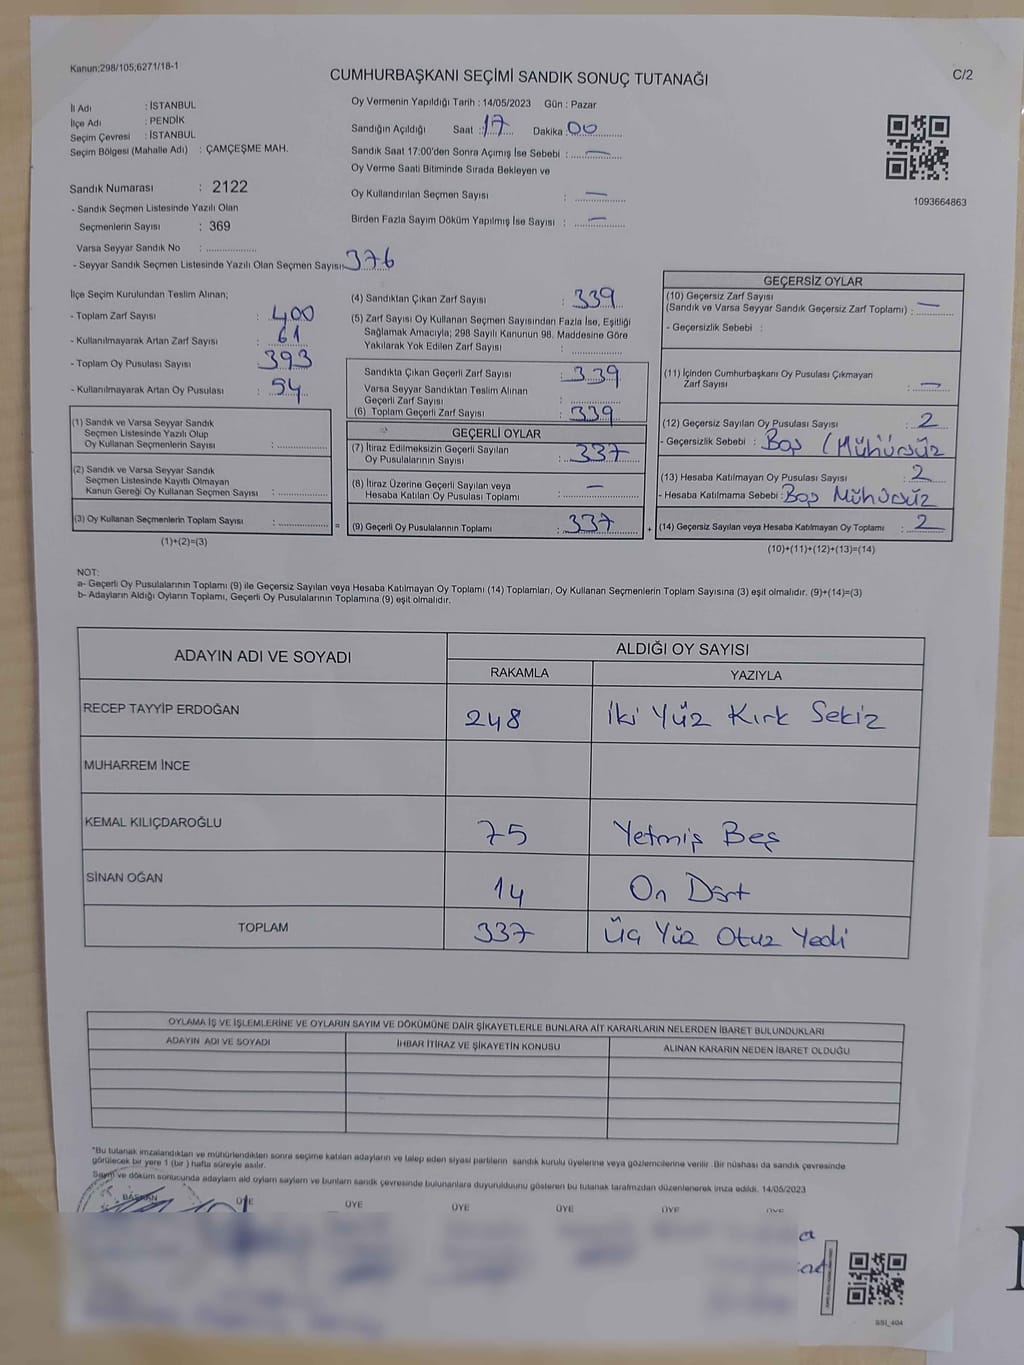 Kanun;298/105;6271/18-1
CUMHURBAŞKANI SEÇİMİ SANDIK SONUÇ TUTANAĞI
C/2
İl Adı : İSTANBUL
İlçe Adı : PENDİK
Seçim Çevresi : İSTANBUL
Seçim Bölgesi (Mahalle Adı) : ÇAMÇEŞME MAH.
Sandık Numarası : 2122
- Sandık Seçmen Listesinde Yazılı Olan
Seçmenlerin Sayısı : 369
Varsa Seyyar Sandık No : ................
- Seyyar Sandık Seçmen Listesinde Yazılı Olan Seçmen Sayısı: 376
Oy Vermenin Yapıldığı Tarih : 14/05/2023 Gün : Pazar
Sandığın Açıldığı Saat : 17 Dakika 00
Sandık Saat 17:00'den Sonra Açımış İse Sebebi : —
Oy Verme Saati Bitiminde Sırada Bekleyen ve
Oy Kullandırılan Seçmen Sayısı : —
Birden Fazla Sayım Döküm Yapılmış İse Sayısı : —
1093664863
İlçe Seçim Kurulundan Teslim Alınan;
- Toplam Zarf Sayısı : 400
- Kullanılmayarak Artan Zarf Sayısı : 61
- Toplam Oy Pusulası Sayısı : 393
- Kullanılmayarak Artan Oy Pusulası : 54
(1) Sandık ve Varsa Seyyar Sandık
Seçmen Listesinde Yazılı Olup
Oy Kullanan Seçmenlerin Sayısı : ..............
(2) Sandık ve Varsa Seyyar Sandık
Seçmen Listesinde Kayıtlı Olmayan
Kanun Gereği Oy Kullanan Seçmen Sayısı : ..............
(3) Oy Kullanan Seçmenlerin Toplam Sayısı : .............. =
(1)+(2)=(3)
(4) Sandıktan Çıkan Zarf Sayısı : 339
(5) Zarf Sayısı Oy Kullanan Seçmen Sayısından Fazla İse, Eşitliği
Sağlamak Amacıyla; 298 Sayılı Kanunun 98. Maddesine Göre
Yakılarak Yok Edilen Zarf Sayısı : ..............
Sandıkta Çıkan Geçerli Zarf Sayısı : 339
Varsa Seyyar Sandıktan Teslim Alınan
Geçerli Zarf Sayısı : ..............
(6) Toplam Geçerli Zarf Sayısı : 339
GEÇERLİ OYLAR
(7) İtiraz Edilmeksizin Geçerli Sayılan
Oy Pusulalarının Sayısı : 337
(8) İtiraz Üzerine Geçerli Sayılan veya
Hesaba Katılan Oy Pusulası Toplamı : —
(9) Geçerli Oy Pusulalarının Toplamı : 337 +
GEÇERSİZ OYLAR
(10) Geçersiz Zarf Sayısı
(Sandık ve Varsa Seyyar Sandık Geçersiz Zarf Toplamı) : —
- Geçersizlik Sebebi :
(11) İçinden Cumhurbaşkanı Oy Pusulası Çıkmayan
Zarf Sayısı : —
(12) Geçersiz Sayılan Oy Pusulası Sayısı : 2
- Geçersizlik Sebebi : Boş (Mühürsüz
(13) Hesaba Katılmayan Oy Pusulası Sayısı : 2
- Hesaba Katılmama Sebebi : Boş Mühürsüz
(14) Geçersiz Sayılan veya Hesaba Katılmayan Oy Toplamı : 2
(10)+(11)+(12)+(13)=(14)
NOT:
a- Geçerli Oy Pusulalarının Toplamı (9) ile Geçersiz Sayılan veya Hesaba Katılmayan Oy Toplamı (14) Toplamları, Oy Kullanan Seçmenlerin Toplam Sayısına (3) eşit olmalıdır. (9)+(14)=(3)
b- Adayların Aldığı Oyların Toplamı, Geçerli Oy Pusulalarının Toplamına (9) eşit olmalıdır.
ADAYIN ADI VE SOYADI
ALDIĞI OY SAYISI
RAKAMLA YAZIYLA
RECEP TAYYİP ERDOĞAN 248 İki Yüz Kırk Sekiz
MUHARREM İNCE
KEMAL KILIÇDAROĞLU 75 Yetmiş Beş
SİNAN OĞAN 14 On Dört
TOPLAM 337 Üç Yüz Otuz Yedi
OYLAMA İŞ VE İŞLEMLERİNE VE OYLARIN SAYIM VE DÖKÜMÜNE DAİR ŞİKAYETLERLE BUNLARA AİT KARARLARIN NELERDEN İBARET BULUNDUKLARI
ADAYIN ADI VE SOYADI İHBAR İTİRAZ VE ŞİKAYETİN KONUSU ALINAN KARARIN NEDEN İBARET OLDUĞU
*Bu tutanak imzalandıktan ve mühürlendikten sonra seçime katılan adayların ve talep eden siyasi partilerin sandık kurulu üyelerine veya gözlemcilerine verilir. Bir nüshası da sandık çevresinde
görülecek bir yere 1 (bir) hafta süreyle asılır.
Sayım ve döküm sonucunda adayların aldı oyların sayıları ve bunların sandık çevresinde bulunanlara duyurulduunu gösteren bu tutanak tarafımızdan düzenlenerek imza edildi. 14/05/2023
BAŞKAN ÜYE ÜYE ÜYE ÜYE ÜYE ÜYE
SSI_404